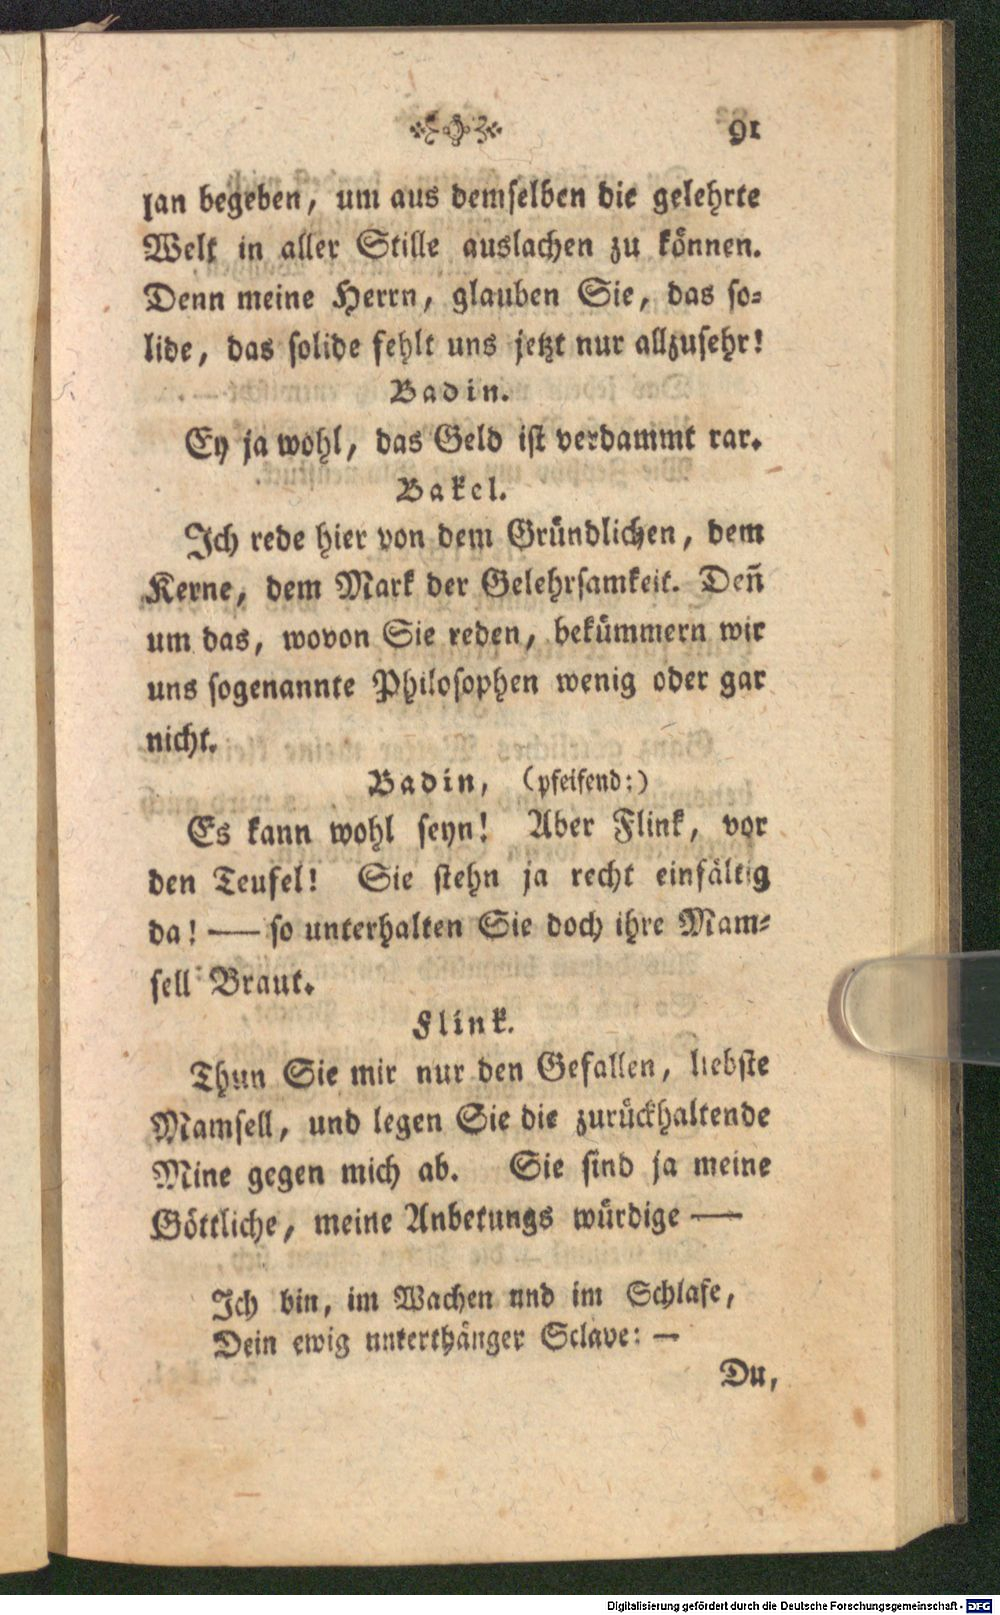 91
lan begeben, um aus demselben die gelehrte
Welt in aller Stille auslachen zu können.
Denn meine Herrn, glauben Sie, das so-
lide, das solide fehlt uns jetzt nur allzusehr!
Badin.
Ey ja wohl, das Geld ist verdammt rar.
Bakel.
Ich rede hier von dem Gründlichen, dem
Kerne, dem Mark der Gelehrsamkeit. Deñ
um das, wovon Sie reden, bekümmern wir
uns sogenannte Philosophen wenig oder gar
nicht.
Badin, (pfeifend:)
Es kann wohl seyn! Aber Flink, vor
den Teufel! Sie stehn ja recht einfältig
da! — so unterhalten Sie doch ihre Mam-
sell Braut.
Flink.
Thun Sie mir nur den Gefallen, liebste
Mamsell, und legen Sie die zurückhaltende
Mine gegen mich ab. Sie sind ja meine
Göttliche, meine Anbetungs würdige —
Ich bin, im Wachen und im Schlafe,
Dein ewig unterthänger Sclave: —
Du,
Digitalisierung gefördert durch die Deutsche Forschungsgemeinschaft - DFG